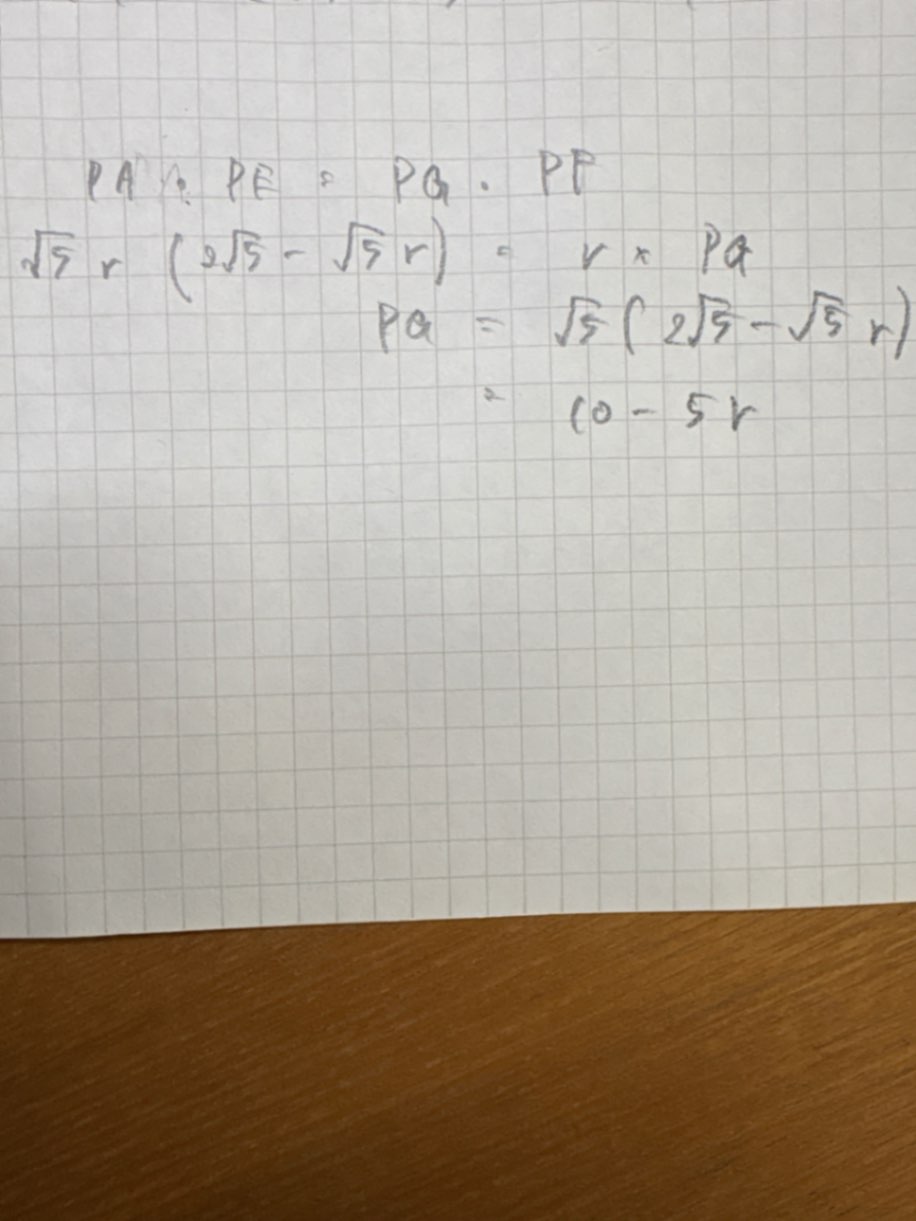 PA · PE = PQ · PF
√5 r (2√5 - √5 r) = r × PQ
PQ = √5 ( 2√5 - √5 r)
= 10 - 5r